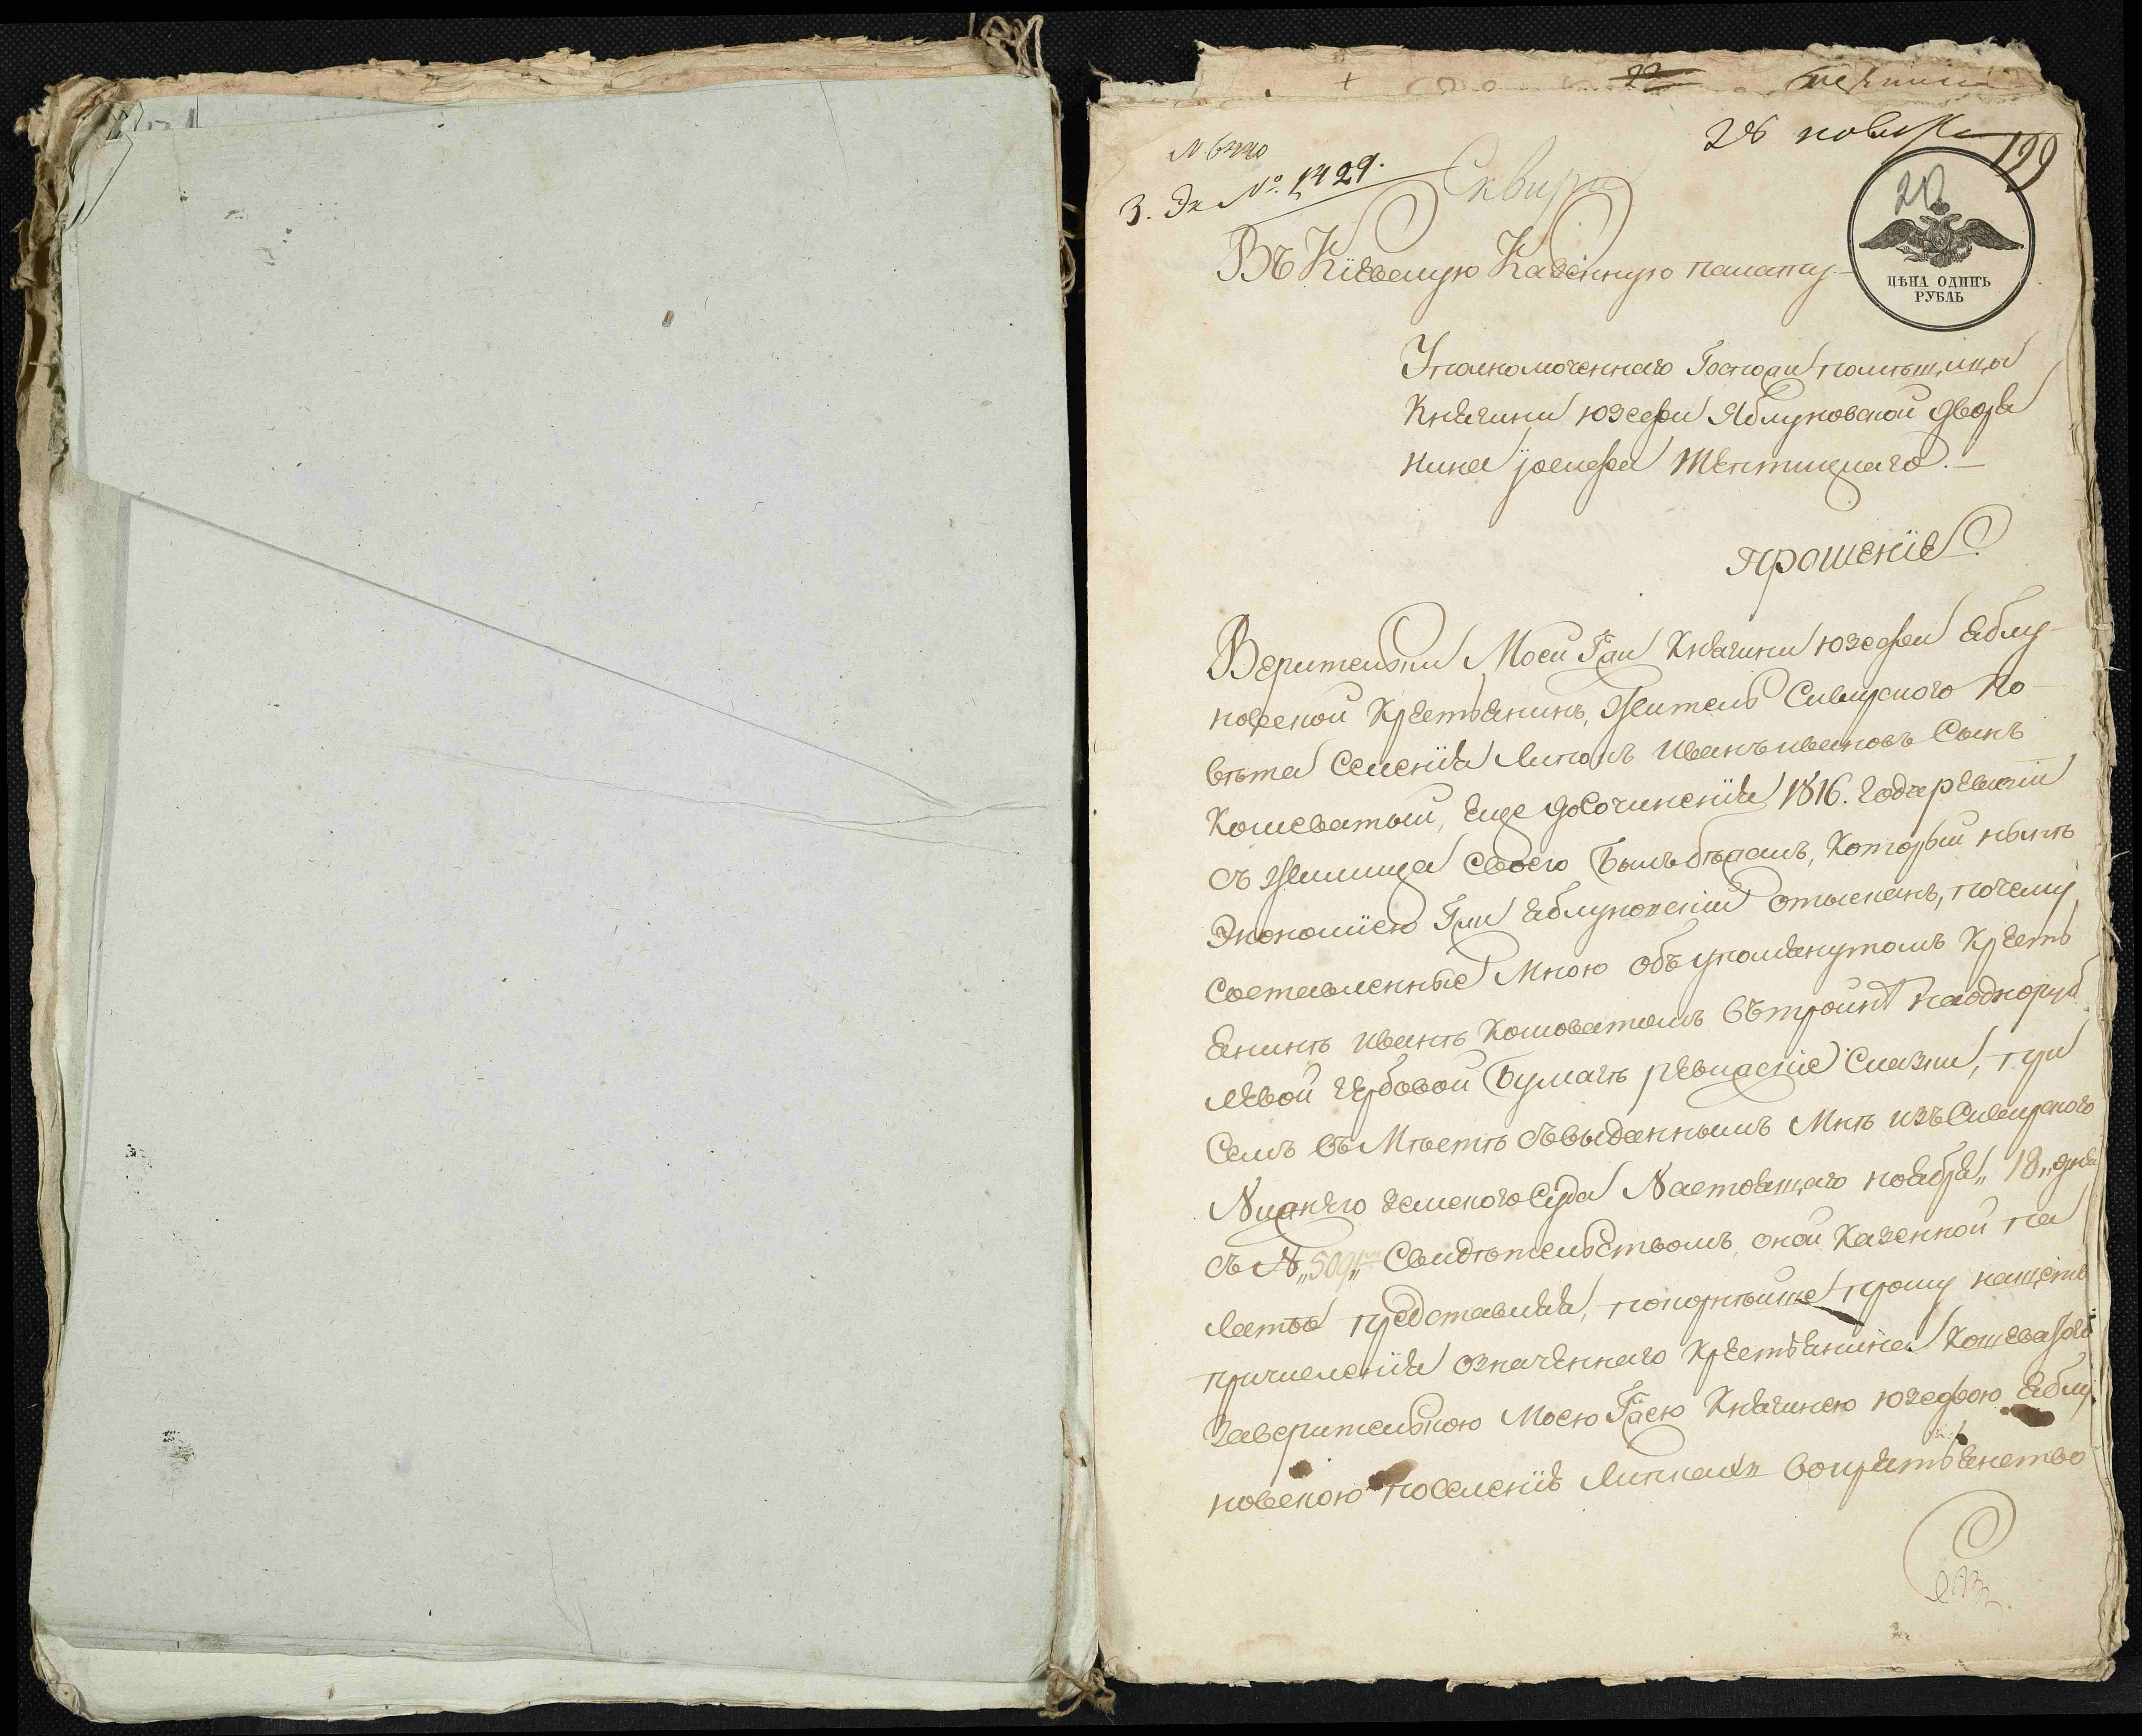 28 ноября
199
№ 6440
3. Эк № 1429.
Сквира
20
ЦѢНА ОДИНЪ
РУБЛЬ
Въ Кіевскую Казенную палату
Уполномоченнаго Госпожи помѣщицы
Княгини Юзефы Яблуновской дворя
нина Іосифа
Прошеніе.
Верительницы Моей Гжи Княгини Юзефы Яблу-
новской Крестьянинъ, Житель Сквирского По-
вѣта Селенія Липокъ Иванъ Ивановъ Сынъ
Кошеватый, Еще до Сочиненія 1816. Года ревизіи
съ Жилища своего былъ бѣжалъ, Который нынѣ
Экономіею Гжи Яблуновской отысканъ, почему
Составленные Мною объ упомянутомъ Кресть
янинѣ Иванѣ Кошоватомъ въ тройнѣ на однoруб
левой гербовой бумагѣ ревизскіе Сказки, при
Семъ въ Мѣстѣ съ выданнымъ Мнѣ изъ Сквирского
Нижняго Земского Суда Настоящаго ноября „18„ дня
съ № „509„ Свидѣтельствомъ, оной Казенной па
латѣ представляя, покорнѣйше прошу нащетъ
причисленія означеннаго Крестьянина Кошеватого
За верительницею Моею Гжею Княгинею Юзефою Яблу
новскою по Селеніѣ Липкахъ въ крестьянство